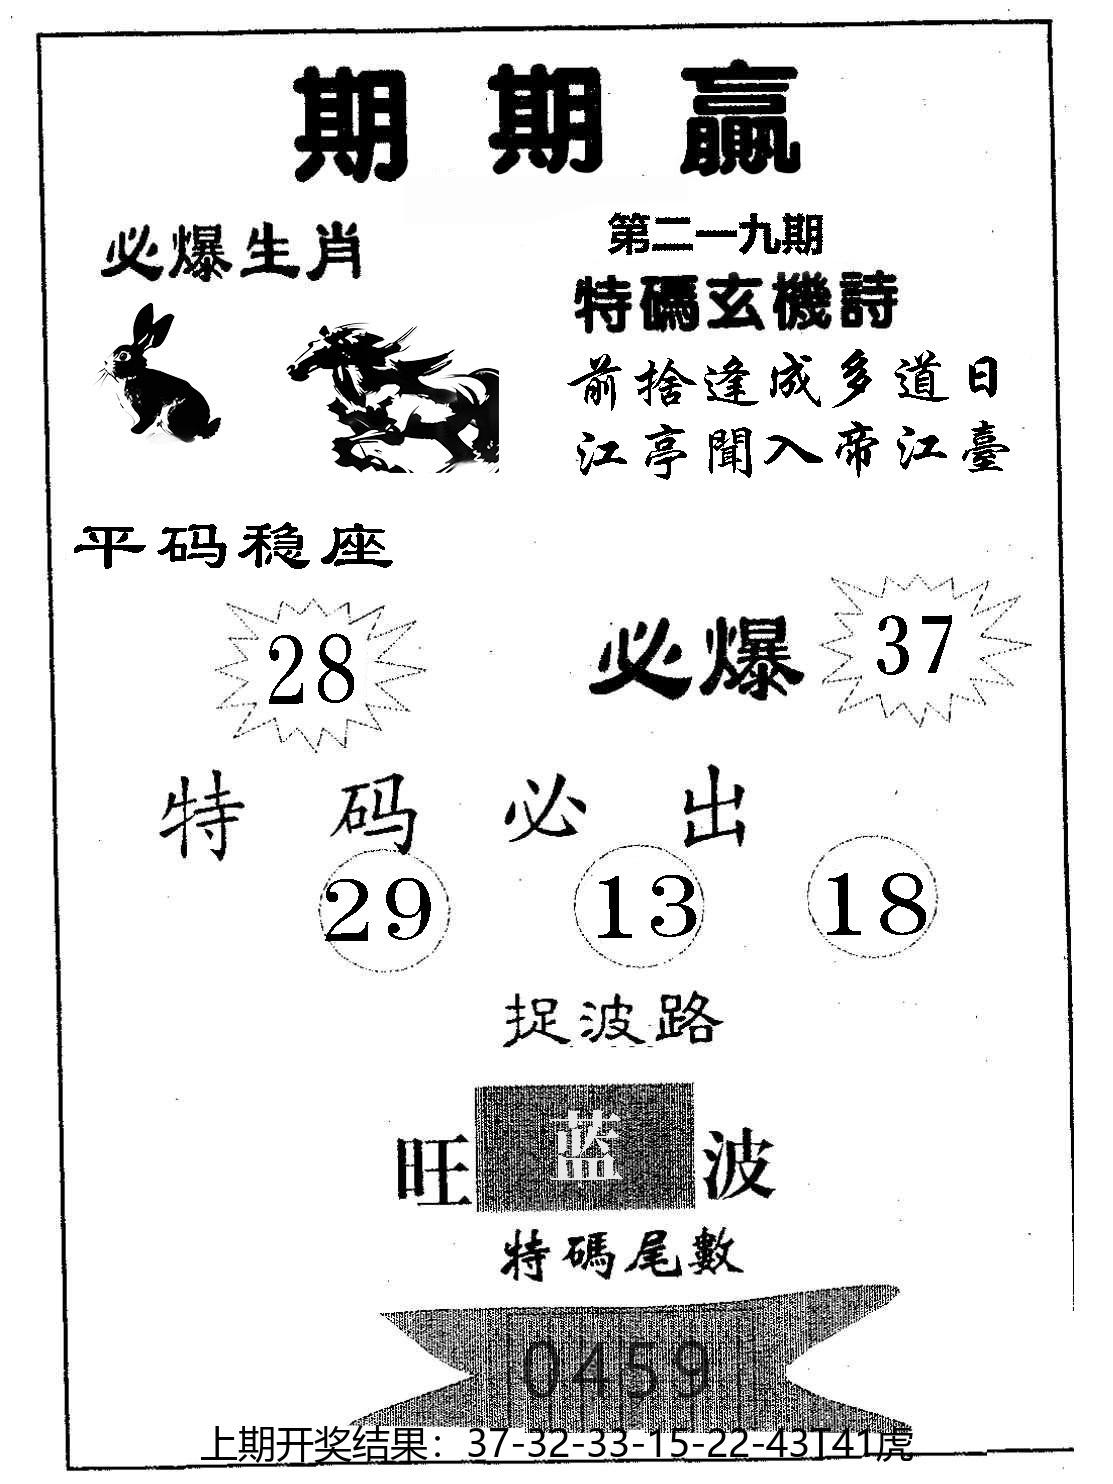 期期贏
必爆生肖
第二一九期
特碼玄機詩
前捨逢成多道日
江亭聞入帝江臺
平码稳座
28
必爆 37
特码必出
29 13 18
捉波路
旺 蓝 波
特碼尾數
0459
上期开奖结果：37-32-33-15-22-43T41虎